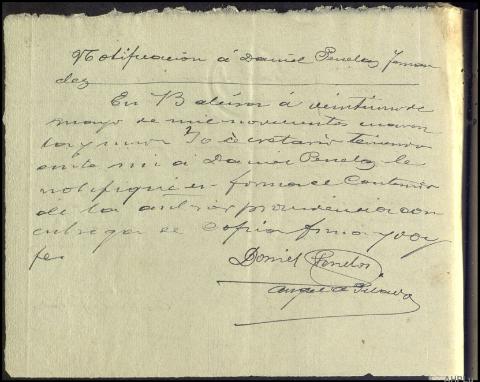 Notificación á Daniel Penelas Fernan
dez
En Baleira á veintiuno de
mayo de mil novecientos cuaren
ta y uno Yo Secretario teniendo
ante mi á Daniel Penelas le
notifiqué en forma el contenido
de la anterior providencia con
entrega de copia firma y doy
fe
Daniel Penelas
Angel de